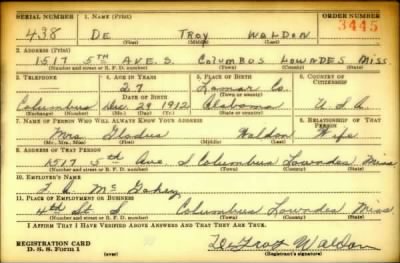 SERIAL NUMBER 1. NAME (Print) ORDER NUMBER
438 DE TROY WALDON 3445
(First) (Middle) (Last)
2. ADDRESS (Print)
1517 5TH AVE. S. COLUMBUS LOWNDES MISS
(Number and street or R. F. D. number) (Town) (County) (State)
3. TELEPHONE 4. AGE IN YEARS 5. PLACE OF BIRTH 6. COUNTRY OF CITIZENSHIP
27 Lamar Co.
Columbus Dec. 29 1912 Alabama U.S.A.
(Exchange) (Number) (Mo.) (Day) (Yr.) (State or country)
7. NAME OF PERSON WHO WILL ALWAYS KNOW YOUR ADDRESS 8. RELATIONSHIP OF THAT PERSON
Mrs Gladys Waldon Wife
(Mr., Mrs., Miss) (First) (Middle) (Last)
9. ADDRESS OF THAT PERSON
1517 5th Ave. S Columbus Lowndes Miss
(Number and street or R. F. D. number) (Town) (County) (State)
10. EMPLOYER'S NAME
Mc
11. PLACE OF EMPLOYMENT OR BUSINESS
4th St S Columbus Lowndes Miss.
(Number and street or R. F. D. number) (Town) (County) (State)
I AFFIRM THAT I HAVE VERIFIED ABOVE ANSWERS AND THAT THEY ARE TRUE.
REGISTRATION CARD
D. S. S. Form 1 (over) DeTroy Waldon
(Registrant's signature)